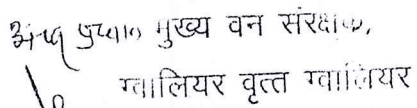 अपर प्रधान मुख्य वन संरक्षक,
ग्वालियर वृत्त ग्वालियर